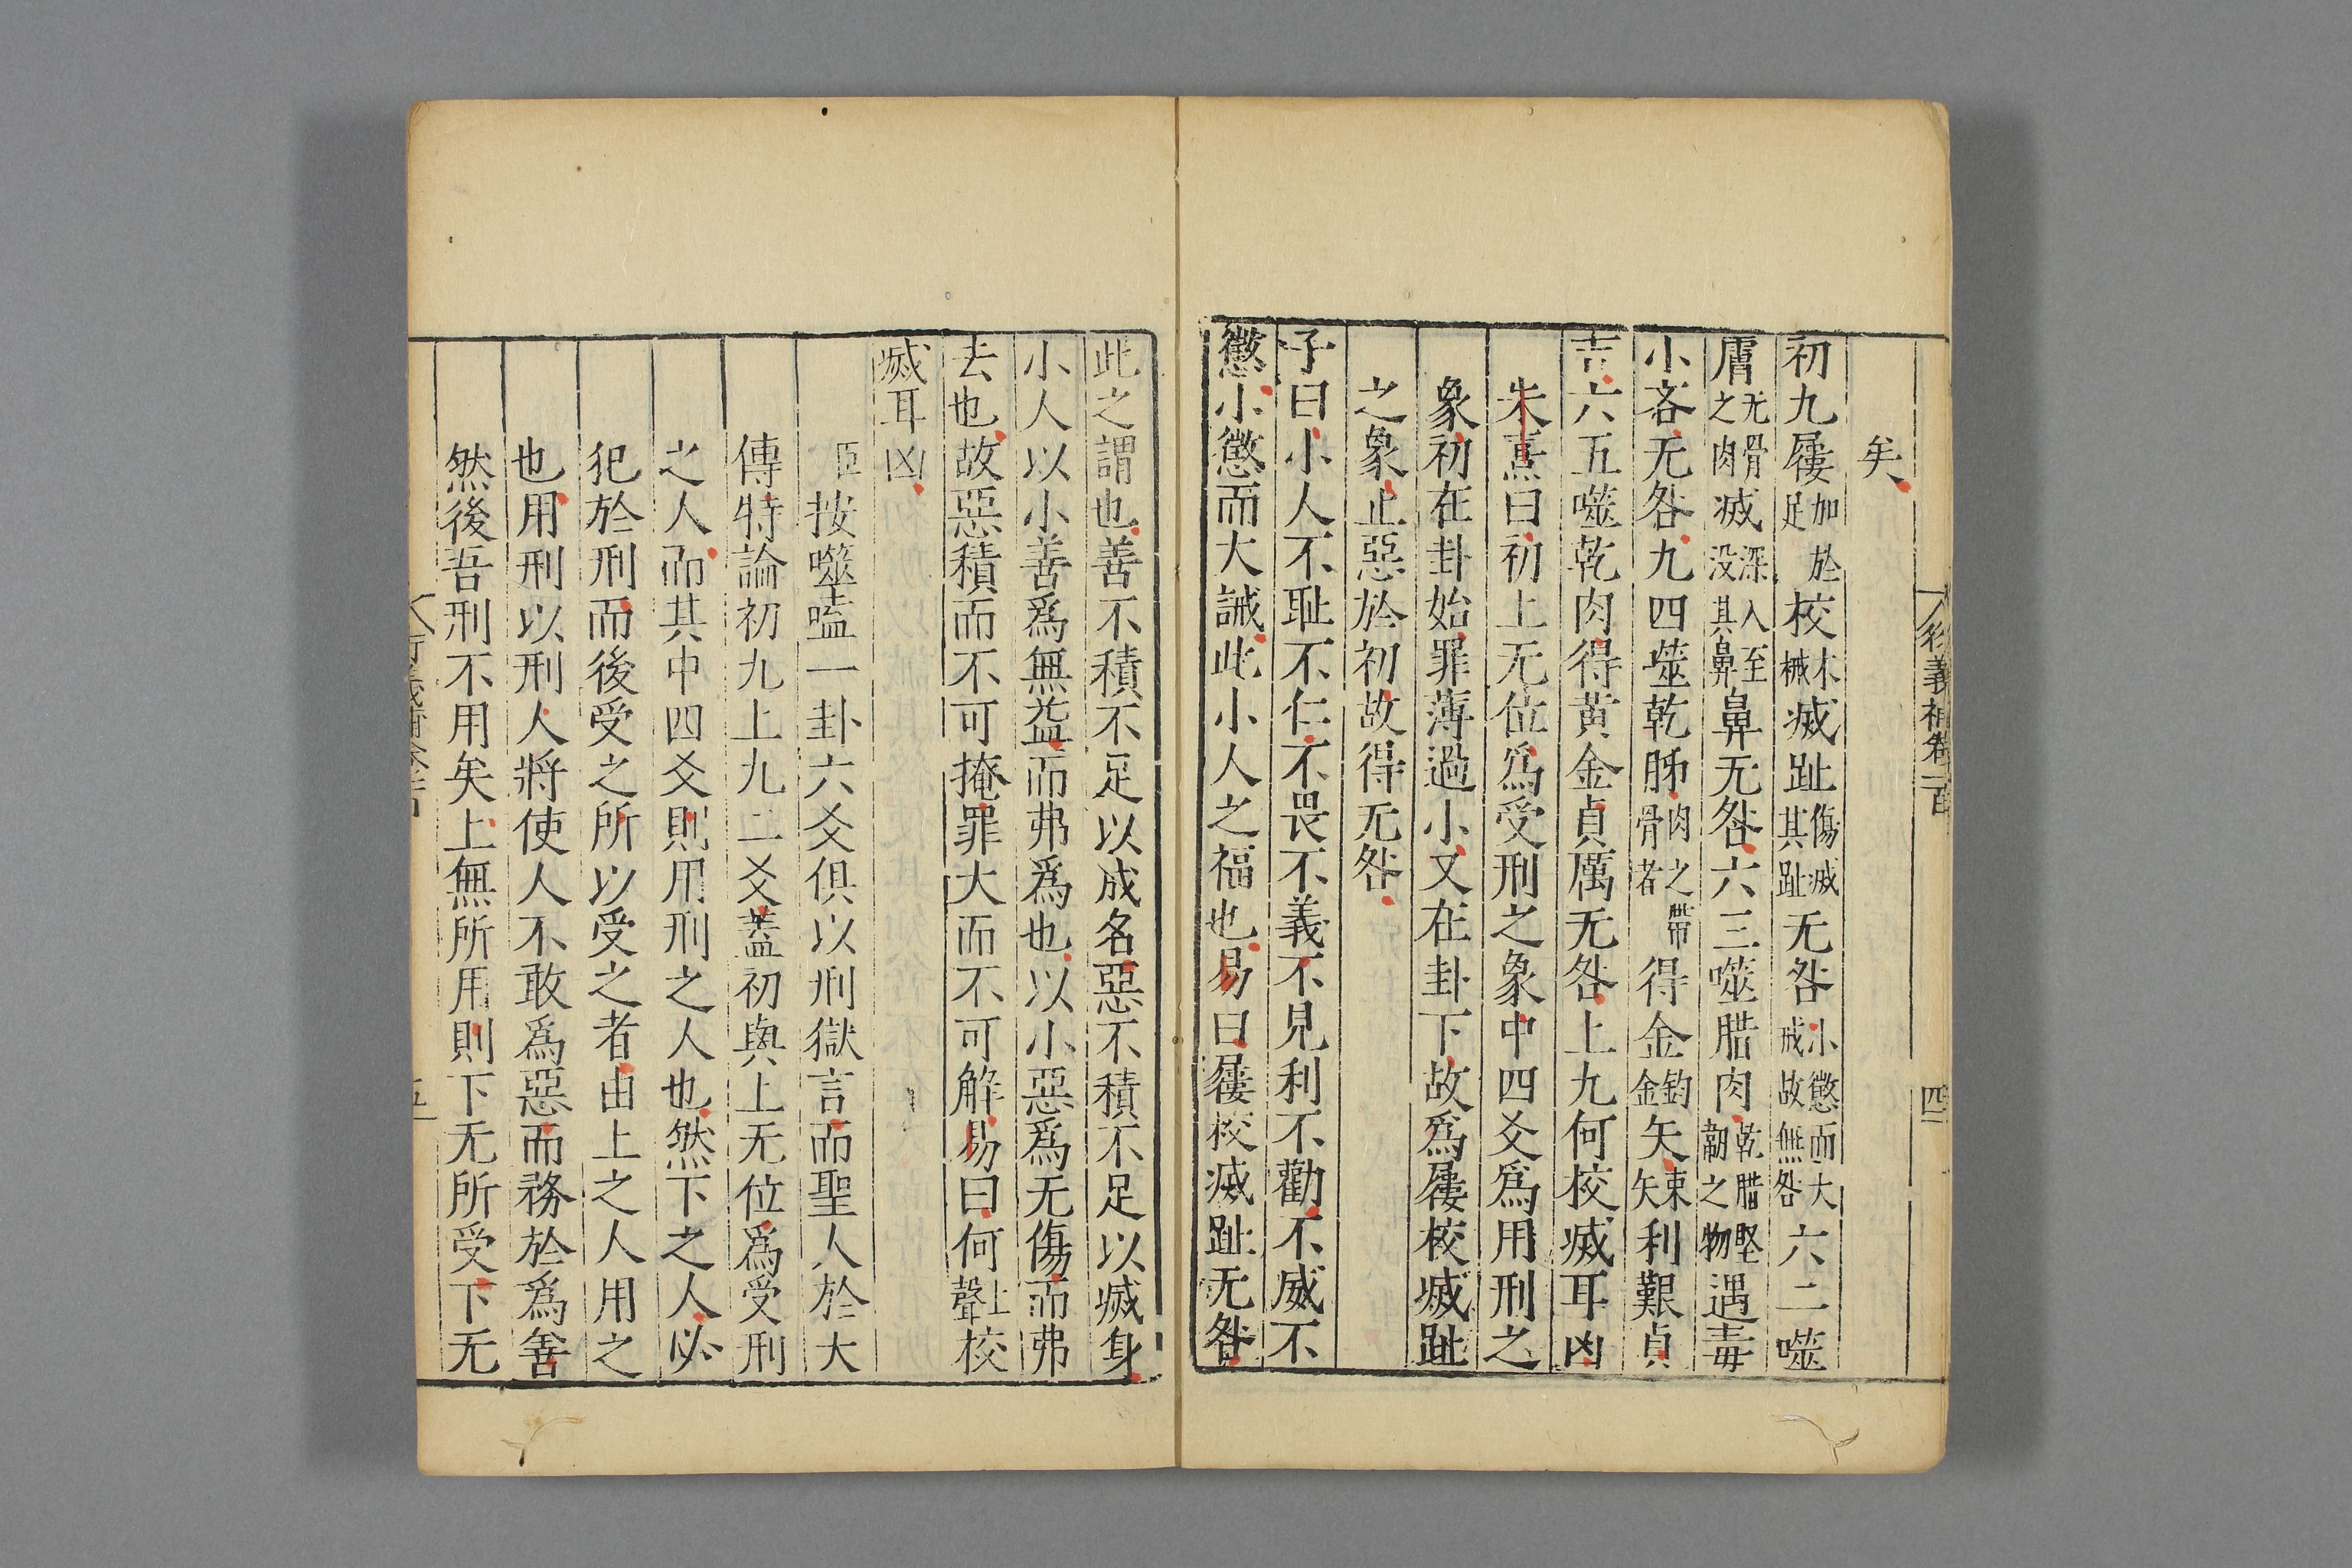 衍義補卷一百
四
矣
初九屨加於足校木械滅趾傷滅其趾无咎小懲而大戒故無咎六二噬
膚无骨之肉滅深入至没其鼻鼻无咎六三噬腊肉乾腊堅韌之物遇毒
小吝无咎九四噬乾胏肉之帶骨者得金鈞金矢束矢利艱貞
吉六五噬乾肉得黃金貞厲无咎上九何校滅耳凶
朱熹曰初上无位爲受刑之象中四爻爲用刑之
象初在卦始罪薄過小又在卦下故爲屨校滅趾
之象止惡於初故得无咎
子曰小人不耻不仁不畏不義不見利不勸不威不
懲小懲而大誡此小人之福也易曰屨校滅趾无咎
此之謂也善不積不足以成名惡不積不足以滅身
小人以小善爲無益而弗爲也以小惡爲无傷而弗
去也故惡積而不可掩罪大而不可解易曰何上聲校
滅耳凶
臣按噬嗑一卦六爻俱以刑獄言而聖人於大
傳特論初九上九二爻蓋初與上无位爲受刑
之人而其中四爻則用刑之人也然下之人必
犯於刑而後受之所以受之者由上之人用之
也用刑以刑人將使人不敢爲惡而務於爲善
然後吾刑不用矣上無所用則下无所受下无
五